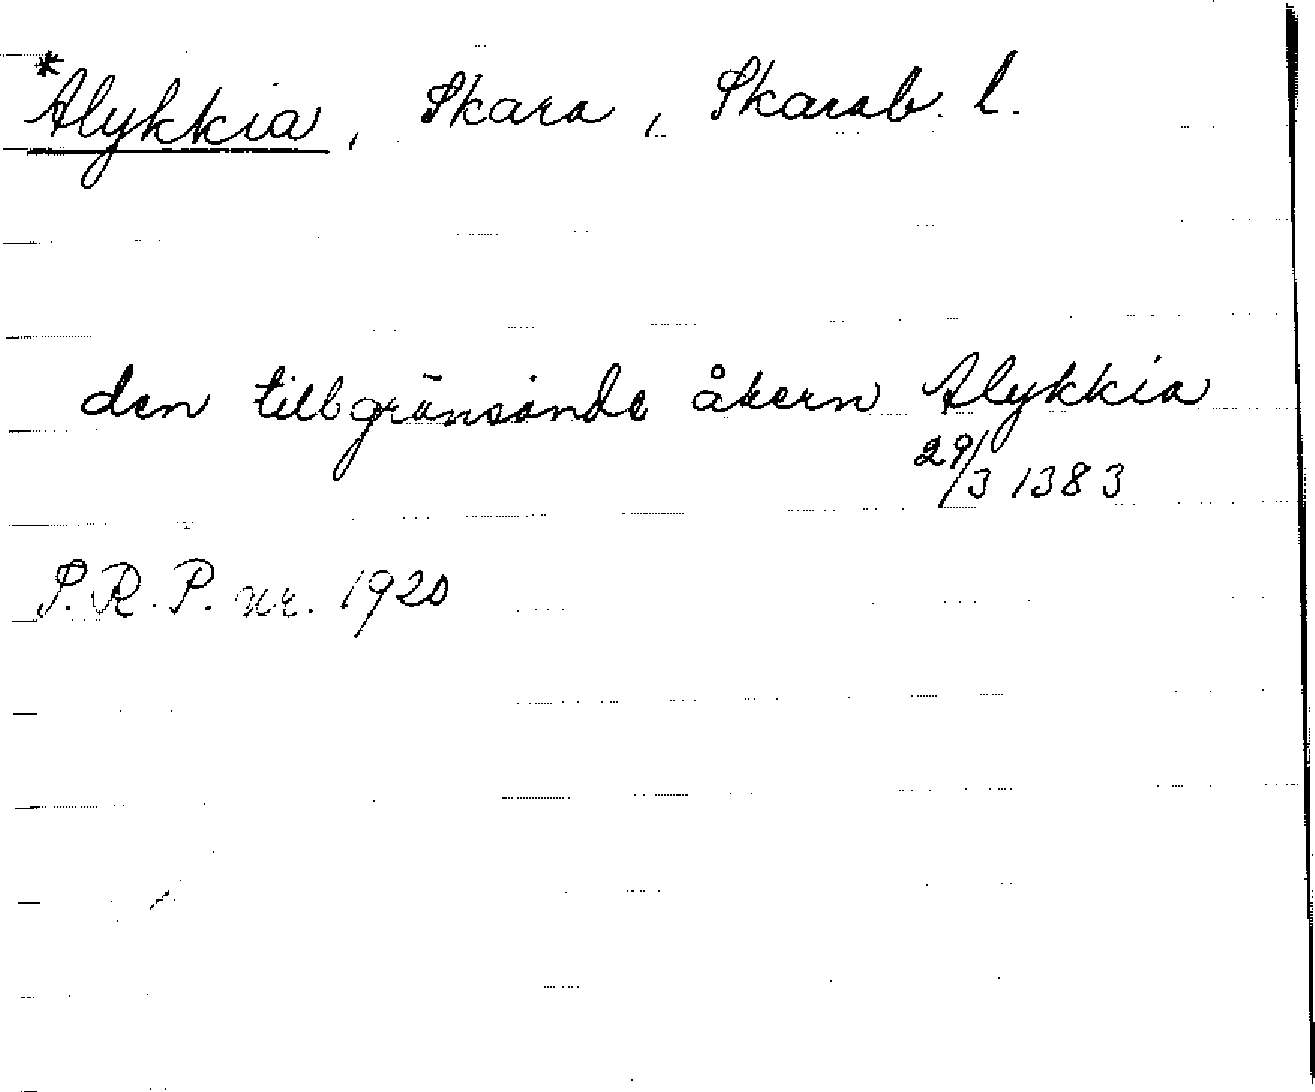 *Alykkia, Skara, Skarab. l.
den tillgränsande åkern Alykkia
29/3 1383
S.R.P. nr. 1920